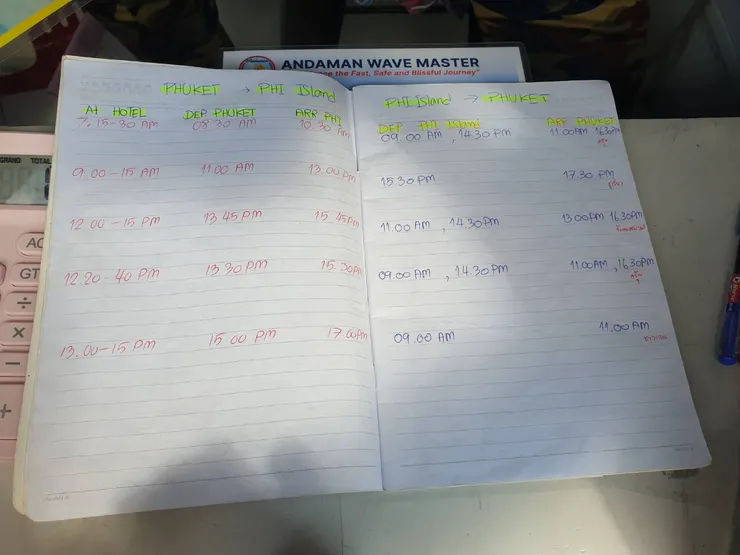 GRAND TOTAL
AC
GT
ANDAMAN WAVE MASTER
the Fast, Safe and Blissful Journey"
PHUKET → PHI Island
At HOTEL DEP PHUKET ARR PHI
7.15-30 AM 08.30 AM 10.30 AM
9.00-15 AM 11.00 AM 13.00 PM
12.00-15 PM 13.45 PM 15.45 PM
12.20-40 PM 13.30 PM 15.30 PM
13.00-15 PM 15.00 PM 17.00 PM
PHI Island → PHUKET
DEP PHI Island ARR PHUKET
09.00 AM, 14.30 PM 11.00 AM 16.30 PM
15.30 PM 17.30 PM
11.00 AM, 14.30 PM 13.00 PM 16.30 PM
09.00 AM, 14.30 PM 11.00 AM, 16.30 PM
09.00 AM 11.00 AM